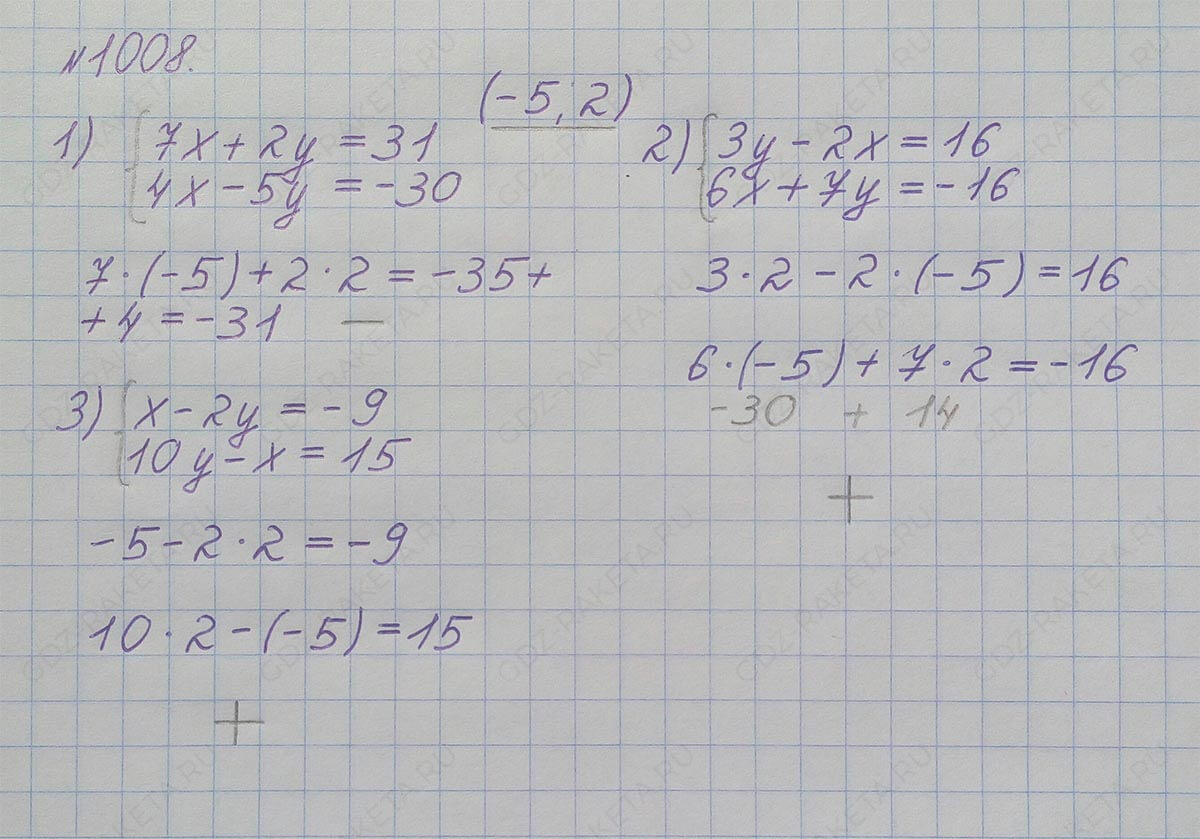 №1008.
(-5; 2)
1) 7x + 2y = 31
4x - 5y = -30
7·(-5)+2·2 = -35+
+4 = -31 —
2) 3y - 2x = 16
6x + 7y = -16
3·2 - 2·(-5) = 16
6·(-5) + 7·2 = -16
-30 + 14
+
3) x - 2y = -9
10y - x = 15
-5 - 2·2 = -9
10·2 - (-5) = 15
+
GDZ-RAKETA.RU